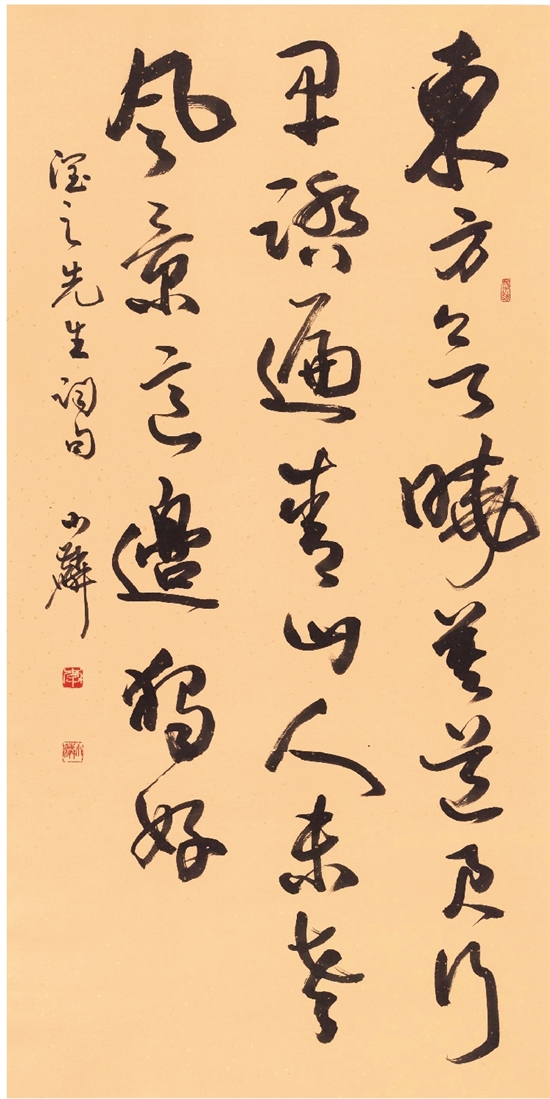 東方欲曉莫道君行
早踏遍青山人未老
風景這邊獨好
潤之先生詞句 小